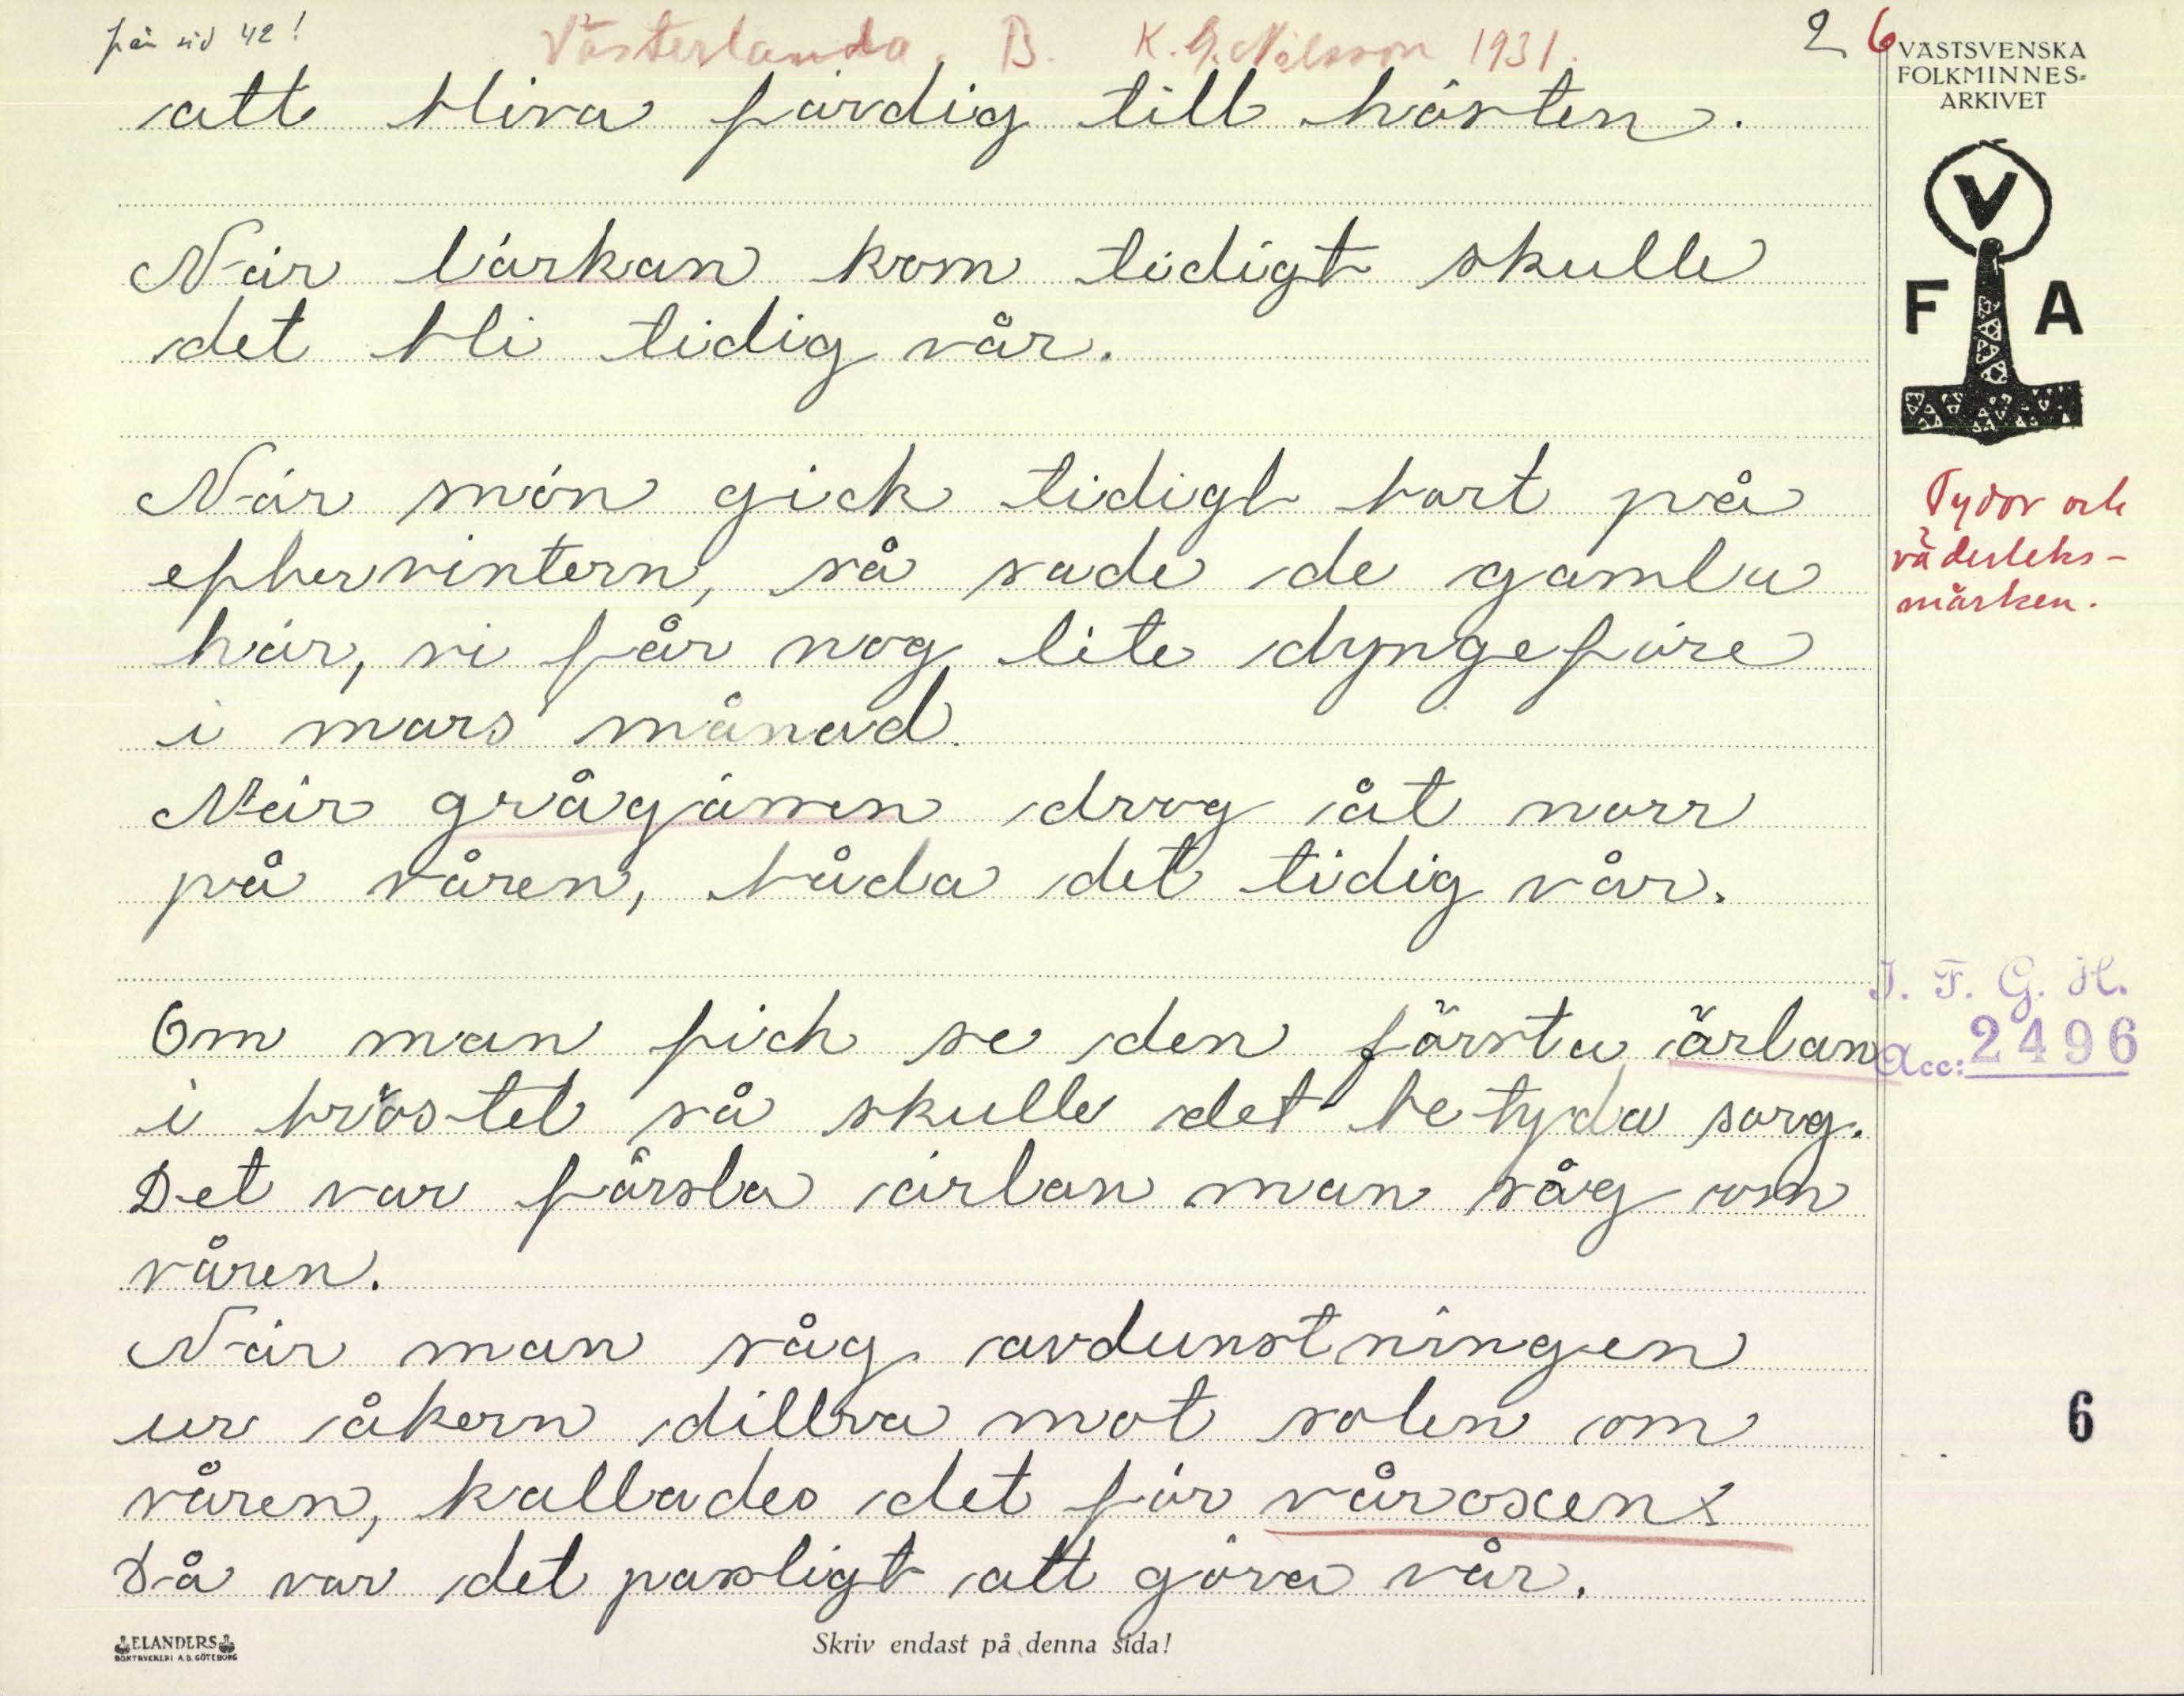 från sid 42!
Västerlanda. B. K. G. Nilsson 1931.
2
6
VÄSTSVENSKA
FOLKMINNES-
ARKIVET
att bliva färdig till hösten.
V
F A
När lärkan kom tidigt skulle
det bli tidig vår.
När snön gick tidigt bort på
eftervintern, så sade de gamla
här, vi får nog lite dyngeföre
i mars månad.
Tydor och
väderleks-
märken.
När grågässen drog åt norr
på våren, båda det tidig vår.
Om man fick se den första ärlan
i bröstet så skulle det betyda sorg.
Det var första ärlan man såg om
våren.
I. F. G. H.
Acc: 2496
När man såg avdunstningen
ur åkern dillra mot solen om
våren, kallades det för våroxen x
Då var det passligt att göra vår.
6
ELANDERS
BOKTRYCKERI A.B. GÖTEBORG
Skriv endast på denna sida!